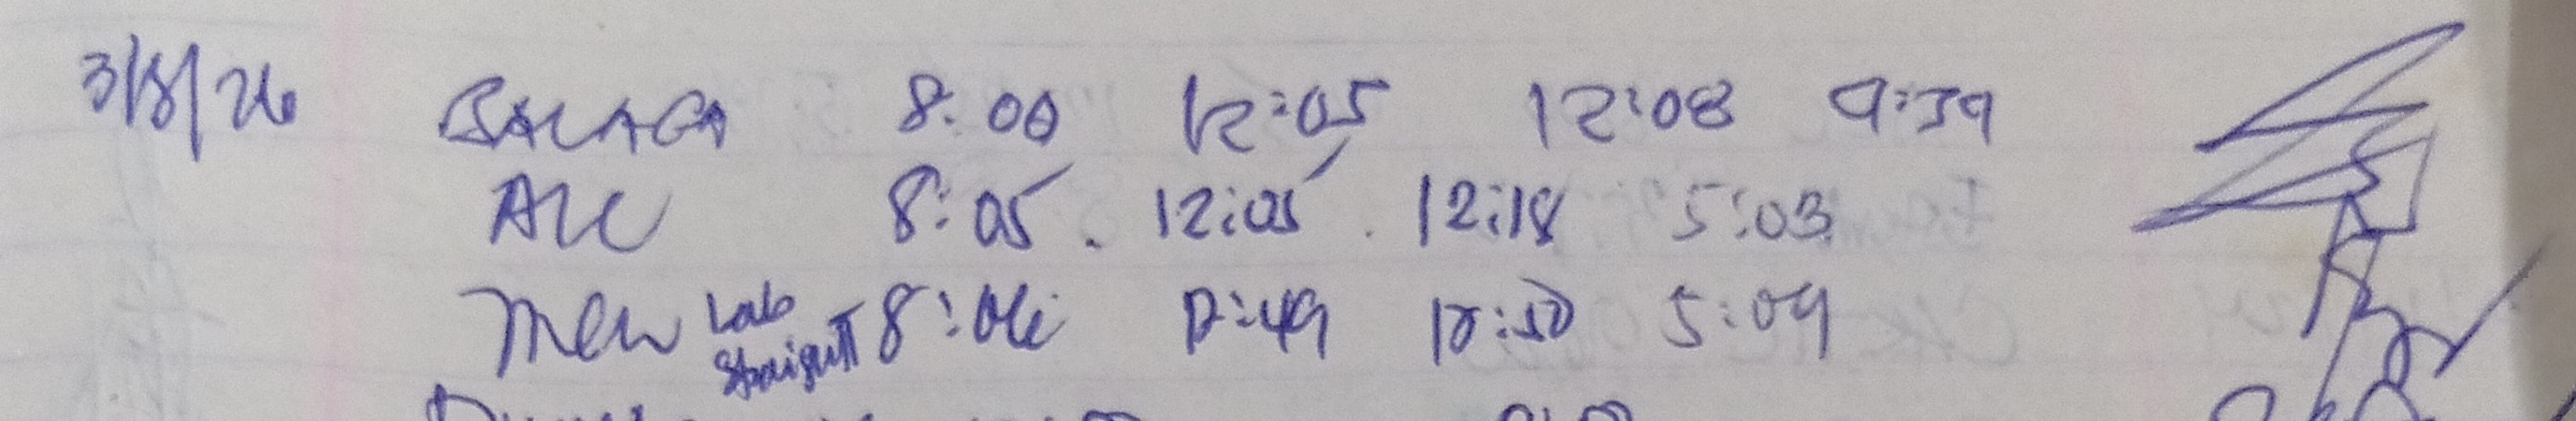 3/8/26 BALAGA 8:00 12:05 12:08 9:39
ALC 8:05 12:05 12:18 5:03
mew Lab Straight 8:06 12:49 12:50 5:09